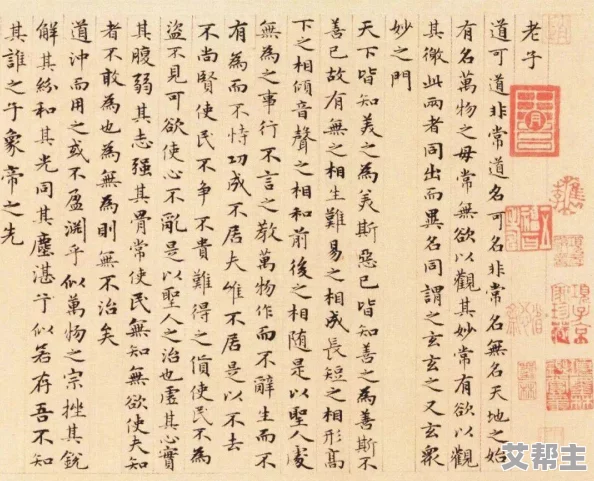 老子
道可道非常道名可名非常名無名天地之始
有名萬物之母常無欲以觀其妙常有欲以觀
其徼此兩者同出而異名同謂之玄玄之又玄衆
妙之門
天下皆知美之為美斯惡已皆知善之為善斯不
善已故有無之相生難易之相成長短之相形高
下之相傾音聲之相和前後之相随是以聖人處
無為之事行不言之教萬物作而不辭生而不
有為而不恃功成不居夫惟不居是以不去
不尚賢使民不争不貴難得之貨使民不為
盗不見可欲使心不亂是以聖人之治也虛其心實
其腹弱其志强其骨常使民無知無欲使夫知
者不敢為也為無為則無不治矣
道沖而用之或不盈淵乎似萬物之宗挫其銳
解其紛和其光同其塵湛兮似若存吾不知
其誰之子象帝之先
項子京家珍藏
艾帮主